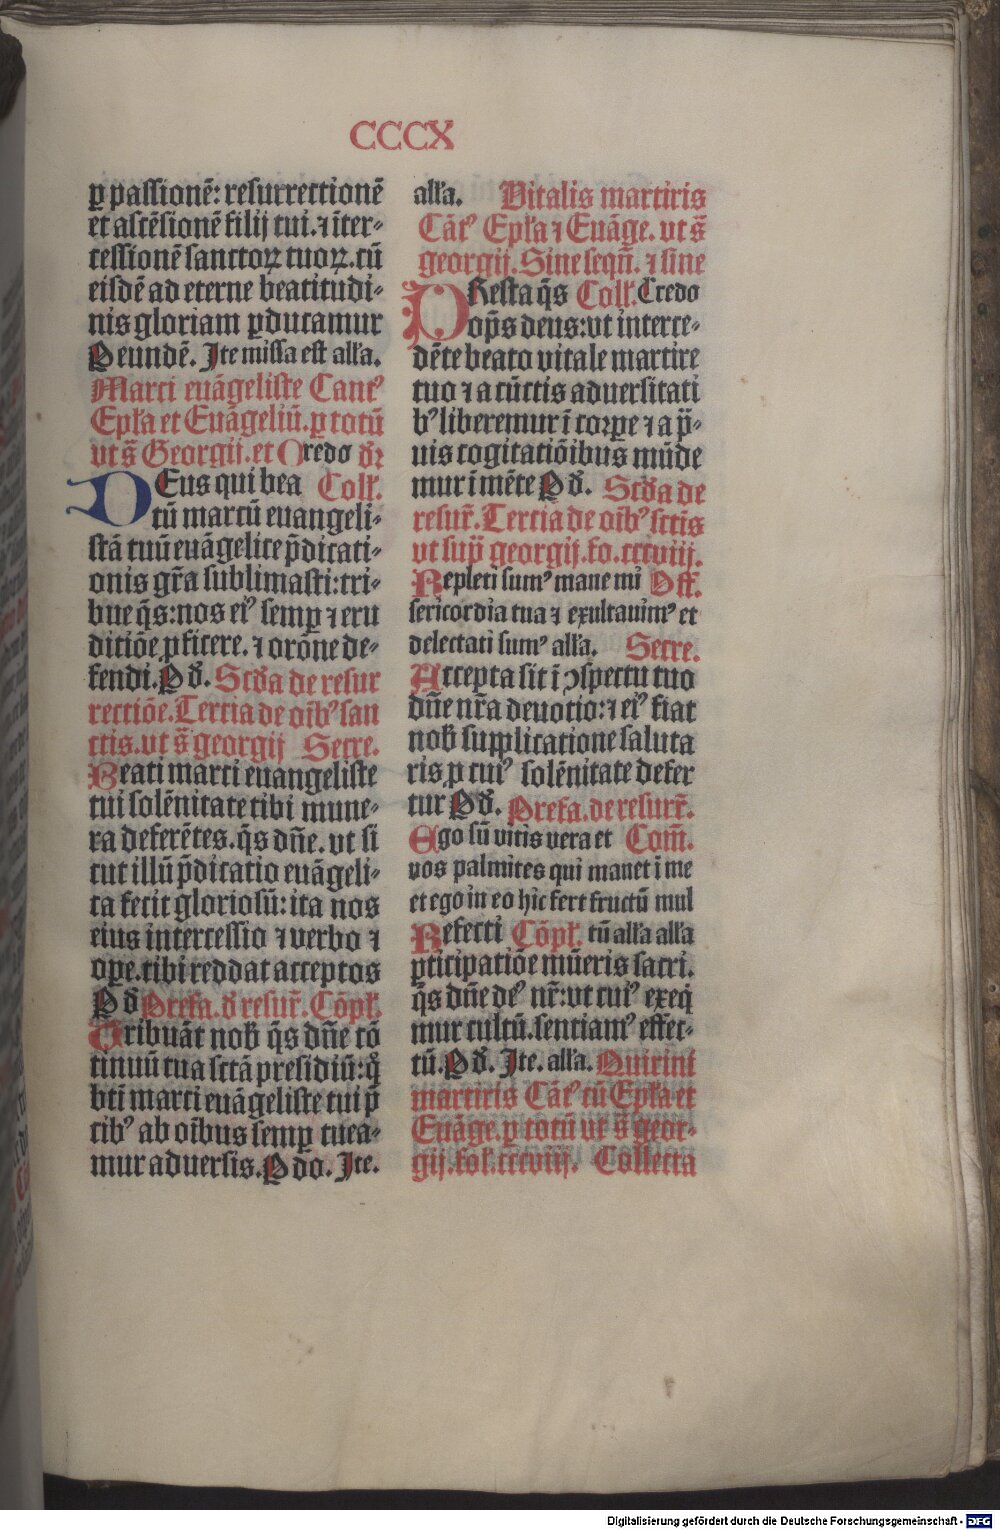 CCCX
ꝑ passionē: resurrectionē
et ascēsionē filij tui. ⁊ īter⸗
cessionē sanctoꝝ tuoꝝ. cū
eisdē ad eterne beatitudi⸗
nis gloriam ꝑducamur
P eundē. Ite missa est all'a.
Marci euāgeliste Cantꝰ
Ep̄la et Euāgeliū. ꝑ totū
vt s̄ Georgij. et Credo dr̄
DEus qui bea Coll'.
tū marcū euangeli⸗
stā tuū euāgelice p̄dicati⸗
onis gr̄a sublimasti: tri⸗
bue q̄s: nos eiꝰ semꝑ ⁊ eru
ditiōe ꝓficere. ⁊ orōne de⸗
fendi. P d̄. Scd̄a de resur
rectiōe. Tercia de oībꝰ san
ctis. vt s̄ georgij Secre.
Beati marci euangeliste
tui solēnitate tibi mune⸗
ra deferētes. q̄s dn̄e. vt si
cut illū p̄dicatio euāgeli⸗
ca fecit gloriosū: ita nos
eius intercessio ⁊ verbo ⁊
oꝑe. tibi reddat acceptos
P d̄ Prefa. d̄ resur̄. Cōpl'.
Tribuāt nob̄ q̄s dn̄e cō
tinuū tua sctā presidiū: q̊
bti marci euāgeliste tui p̄
cibꝰ ab oībus semꝑ tuea⸗
mur aduersis. P dō. Ite.
all'a. Vitalis martiris
Cātꝰ Ep̄la ⁊ Euāge. vt s̄
georgij. Sine seqn̄. ⁊ sine
PResta q̄s Coll'. Credo
op̄s deus: vt interce⸗
dēte beato vitale martire
tuo ⁊ a cūctis aduersitati
bꝰ liberemur ī corꝑe ⁊ a p̄⸗
uis cogitatiōibus mūde
mur ī mēte P d̄. Scd̄a de
resur̄. Tercia de oībꝰ sctīs
vt sup̄ georgij. fo. cccviij.
Repleti sumꝰ mane mi Off.
sericordia tua ⁊ exultauimꝰ et
delectati sumꝰ all'a. Secre.
Accepta sit ī ↄspectu tuo
dn̄e nr̄a deuotio: ⁊ eiꝰ fiat
nob̄ supplicatione saluta
ris ꝓ cuiꝰ solēnitate defer
tur P d̄. Prefa. de resurr̄.
Ego sū vitis vera et Com̄.
vos palmites qui manet ī me
et ego in eo hic fert fructū mul
Refecti Cōpl'. tū all'a all'a
ꝑticipatiōe mūeris sacri.
q̄s dn̄e deꝰ nr̄: vt cuiꝰ exeq̄
mur cultū. sentiamꝰ effec⸗
tū. P d̄. Ite. all'a. Quirini
martiris Cātꝰ cū Ep̄la et
Euāge. ꝑ totū vt s̄ geor⸗
gij. fol. cccviij. Collecta
Digitalisierung gefördert durch die Deutsche Forschungsgemeinschaft - DFG